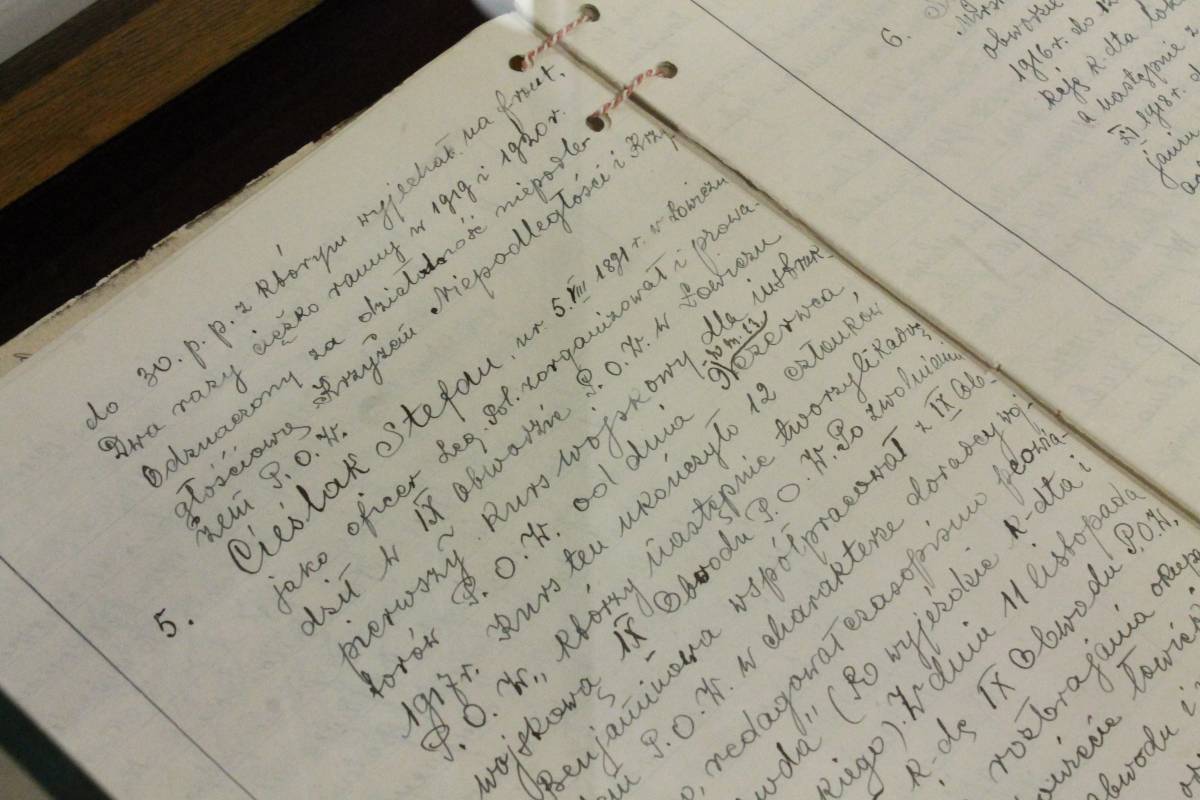 do 30. p. p. z którym wyjechał na front.
Dwa razy ciężko ranny w 1919 i 1920 r.
Odznaczony za działalność niepodle-
głościową Krzyżem Niepodległości i Krzy-
żem P. O. W.
5. Cieślak Stefan, ur. 5. VIII 1891 r. w Łowiczu
jako oficer Leg. Pol. zorganizował i prowa-
dził w IX Obwodzie P. O. W. w Łowiczu
pierwszy kurs wojskowy dla instruk-
torów P. O. W. od dnia czerwca
1917 r. Kurs ten ukończyło 12 członków
P. O. W., którzy następnie tworzyli kadrę
wojskową IX Obwodu P. O. W. Po zwolnieniu
Benjaminowa współpracował z IX Ob-
P. O. W. w charakterze doradcy woj-
redagował czasopismo
" (Po wyjeździe K-dta i
kiego). W dniu 11 listopada
K-dę IX Obwodu P.O.W.
rozbrajania
łowic
obwodu i
6.
obwodzie
1916 r. do 12
K-dta
a następnie z
XI 1918 r.